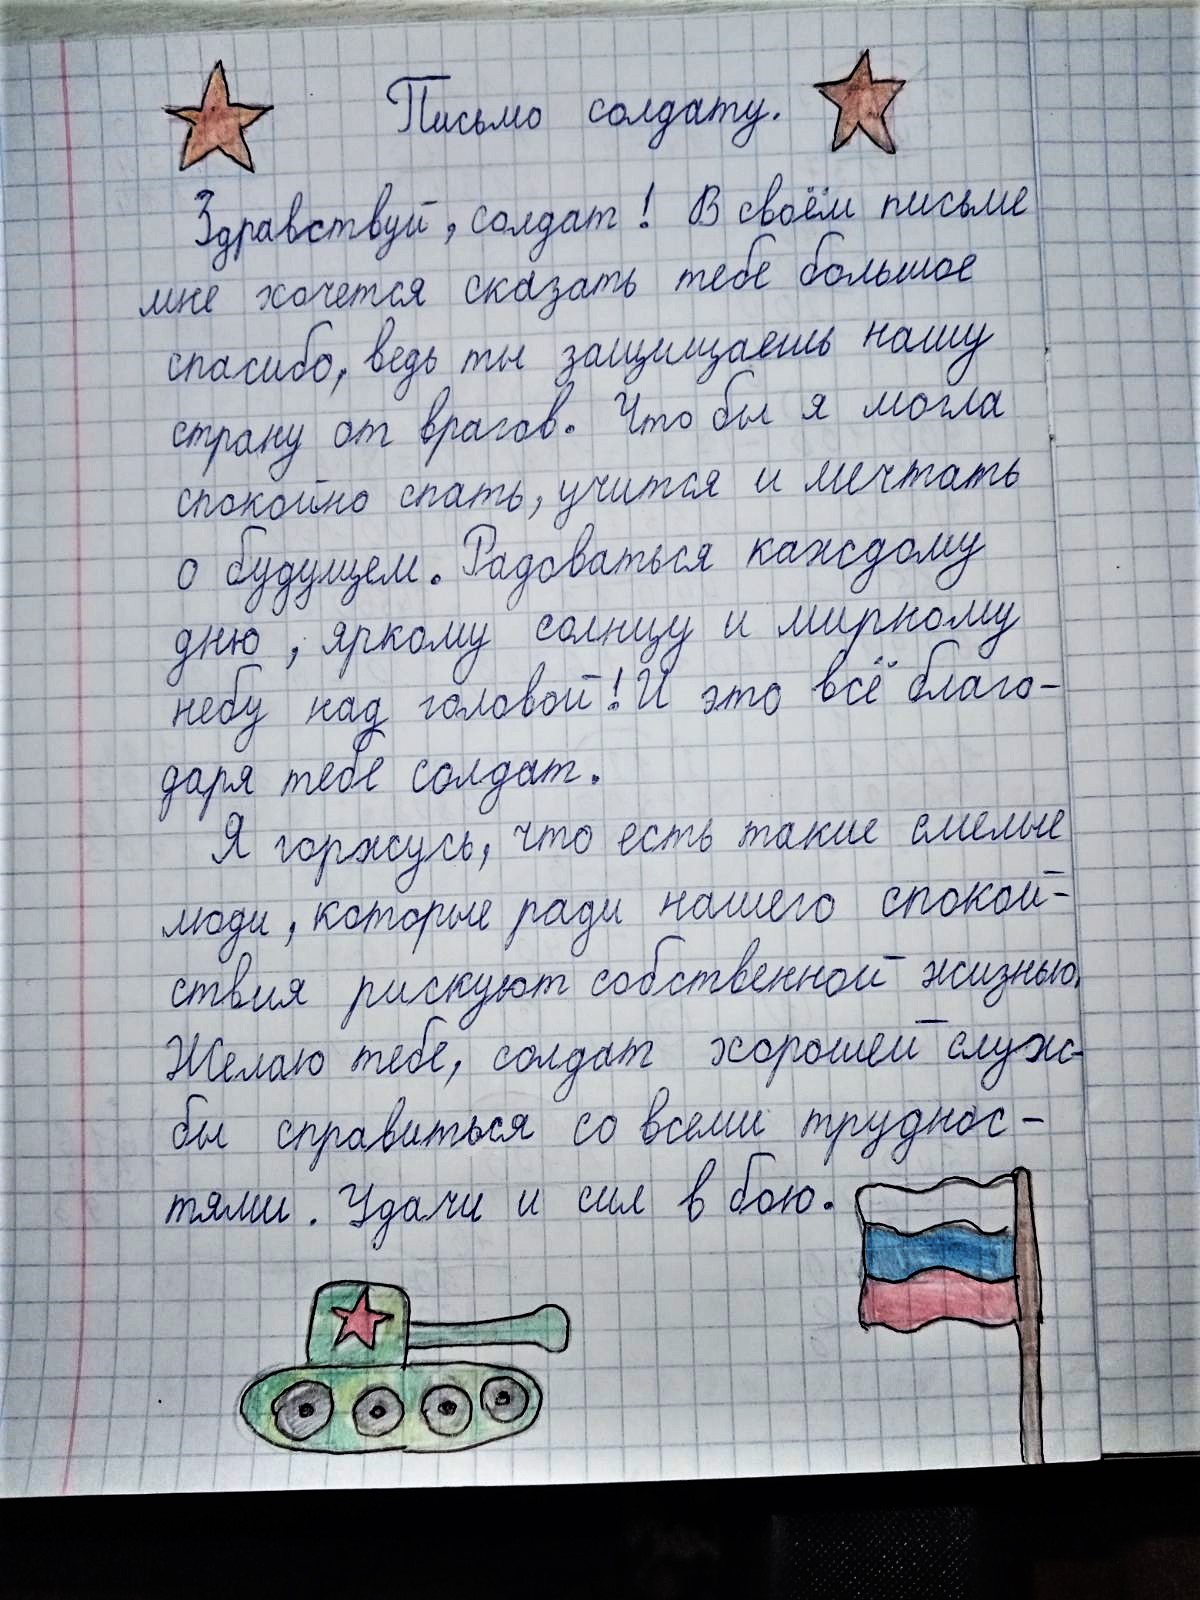 Письмо солдату.
Здравствуй, солдат! В своём письме
мне хочется сказать тебе большое
спасибо, ведь ты защищаешь нашу
страну от врагов. Что бы я могла
спокойно спать, учится и мечтать
о будущем. Радоваться каждому
дню, яркому солнцу и мирному
небу над головой! И это всё благо-
даря тебе солдат.
Я горжусь, что есть такие смелые
люди, которые ради нашего спокой-
ствия рискуют собственной жизнью.
Желаю тебе, солдат хорошей служ-
бы справиться со всеми труднос-
тями. Удачи и сил в бою.